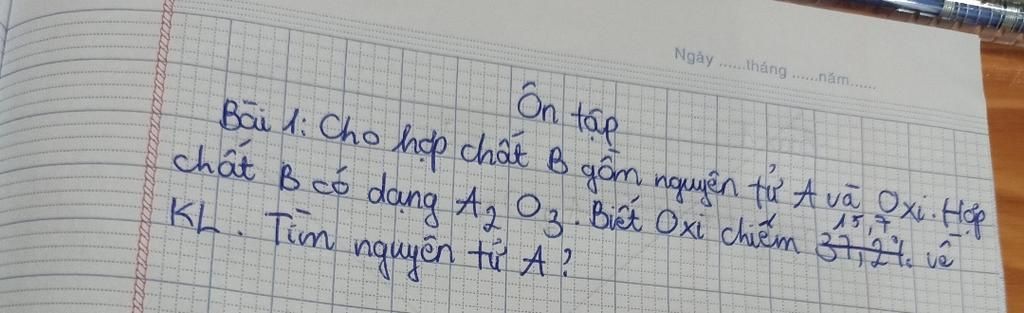 Ngày ......tháng ......năm......
Ôn tập
Bài 1: Cho hợp chất B gồm nguyên tử A và Oxi. Hợp
chất B có dạng A2O3. Biết Oxi chiếm 37,2% về
15,7
KL. Tìm nguyên tử A?